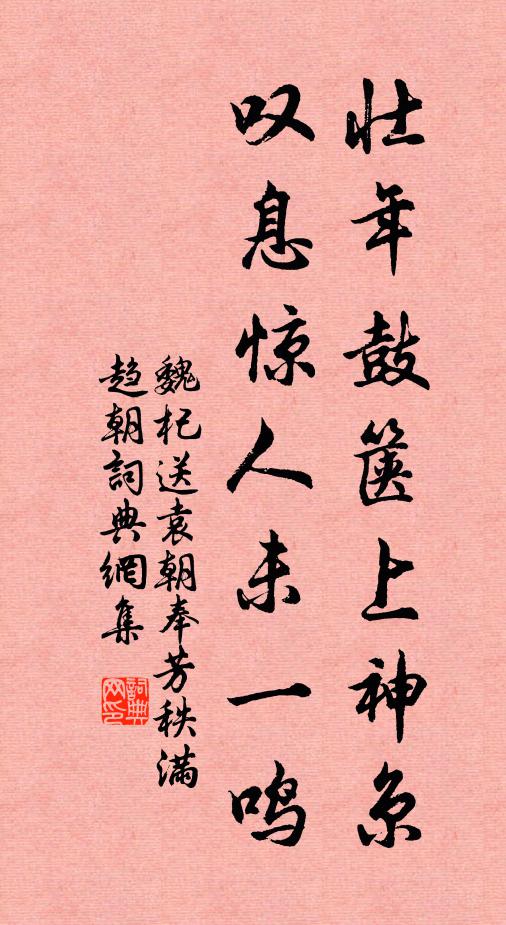 壮年鼓箧上神京
叹息惊人未一鸣
魏杞送袁朝奉芳秩满
趋朝词典网集
詞典网印